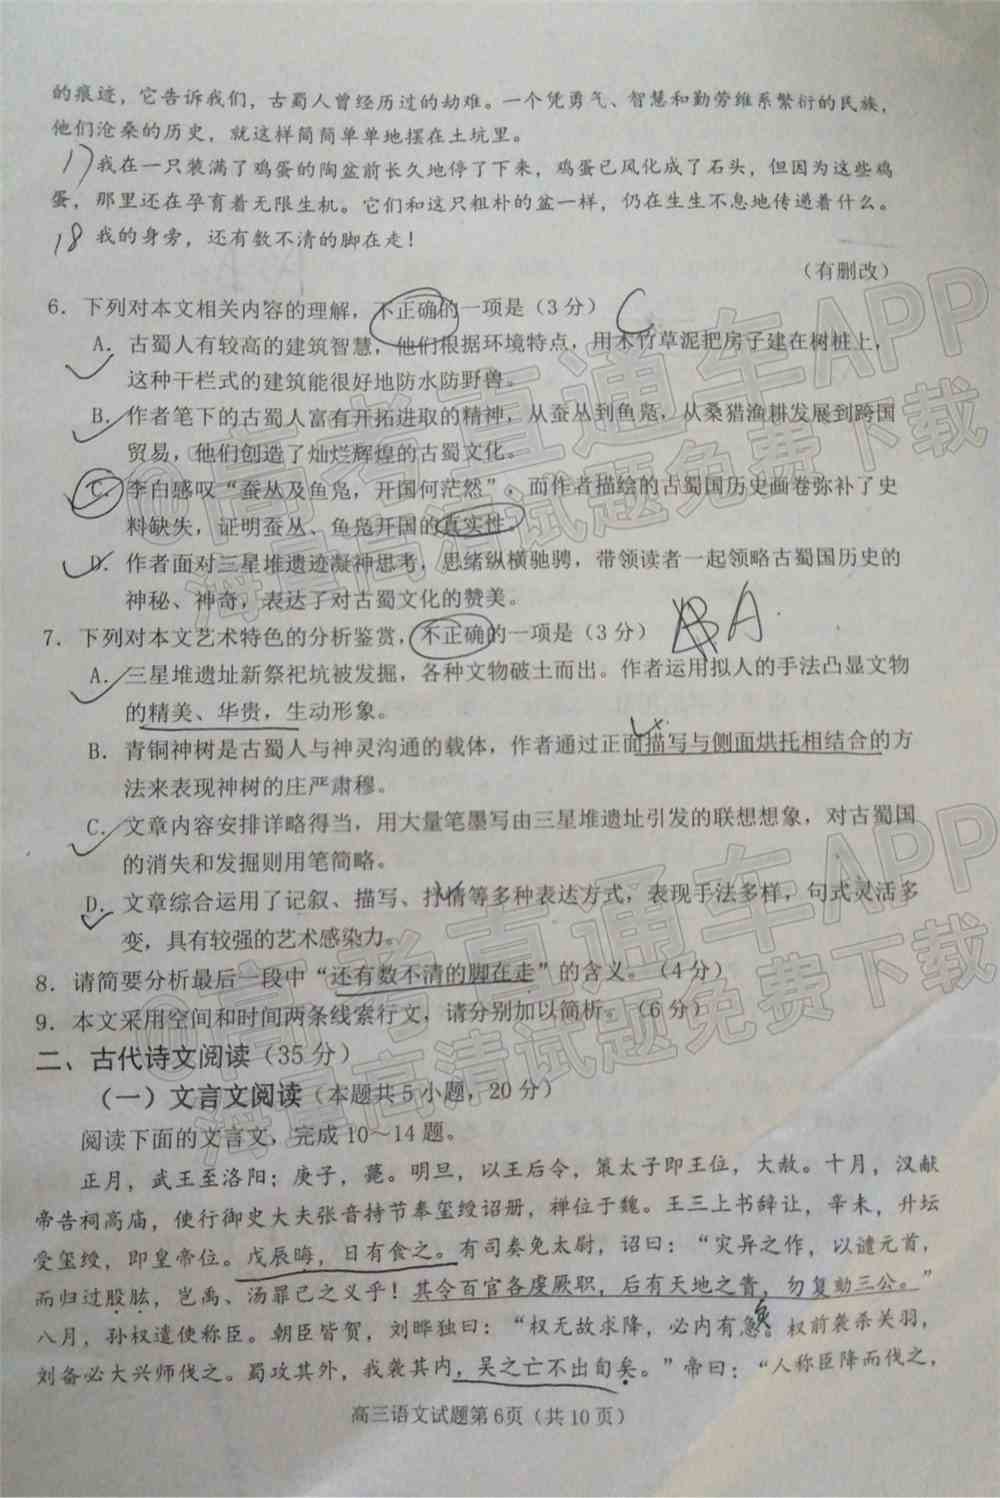 的痕迹，它告诉我们，古蜀人曾经历过的劫难。一个凭勇气、智慧和勤劳维系繁衍的民族，
他们沧桑的历史，就这样简简单单地摆在土坑里。
17 我在一只装满了鸡蛋的陶盆前长久地停了下来，鸡蛋已风化成了石头，但因为这些鸡
蛋，那里还在孕育着无限生机。它们和这只粗朴的盆一样，仍在生生不息地传递着什么。
18 我的身旁，还有数不清的脚在走！
（有删改）
6．下列对本文相关内容的理解，不正确的一项是（3分） C
A．古蜀人有较高的建筑智慧，他们根据环境特点，用木竹草泥把房子建在树桩上，
这种干栏式的建筑能很好地防水防野兽。
B．作者笔下的古蜀人富有开拓进取的精神，从蚕丛到鱼凫，从桑猎渔耕发展到跨国
贸易，他们创造了灿烂辉煌的古蜀文化。
C．李白感叹“蚕丛及鱼凫，开国何茫然”，而作者描绘的古蜀国历史画卷弥补了史
料缺失，证明蚕丛、鱼凫开国的真实性。
D．作者面对三星堆遗迹凝神思考，思绪纵横驰骋，带领读者一起领略古蜀国历史的
神秘、神奇，表达了对古蜀文化的赞美。
7．下列对本文艺术特色的分析鉴赏，不正确的一项是（3分） A
A．三星堆遗址新祭祀坑被发掘，各种文物破土而出。作者运用拟人的手法凸显文物
的精美、华贵，生动形象。
B．青铜神树是古蜀人与神灵沟通的载体，作者通过正面描写与侧面烘托相结合的方
法来表现神树的庄严肃穆。
C．文章内容安排详略得当，用大量笔墨写由三星堆遗址引发的联想想象，对古蜀国
的消失和发掘则用笔简略。
D．文章综合运用了记叙、描写、抒情等多种表达方式，表现手法多样，句式灵活多
变，具有较强的艺术感染力。
8．请简要分析最后一段中“还有数不清的脚在走”的含义。（4分）
9．本文采用空间和时间两条线索行文，请分别加以简析。（6分）
二、古代诗文阅读（35分）
（一）文言文阅读（本题共5小题，20分）
阅读下面的文言文，完成10～14题。
正月，武王至洛阳；庚子，薨。明旦，以王后令，策太子即王位，大赦。十月，汉献
帝告祠高庙，使行御史大夫张音持节奉玺绶诏册，禅位于魏。王三上书辞让，辛未，升坛
受玺绶，即皇帝位。戊辰晦，日有食之。有司奏免太尉，诏曰：“灾异之作，以谴元首，
而归过股肱，岂禹、汤罪己之义乎！其令百官各虔厥职，后有天地之眚，勿复劾三公。”
八月，孙权遣使称臣。朝臣皆贺，刘晔独曰：“权无故求降，必内有急。权前袭杀关羽，
刘备必大兴师伐之。蜀攻其外，我袭其内，吴之亡不出旬矣。”帝曰：“人称臣降而伐之，
高三语文试题第6页（共10页）
@高考直通车APP
海量高清试题免费下载
@高考直通车APP
海量高清试题免费下载